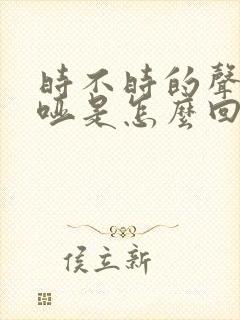 時不時的聲
啞是怎麼回
侯立新